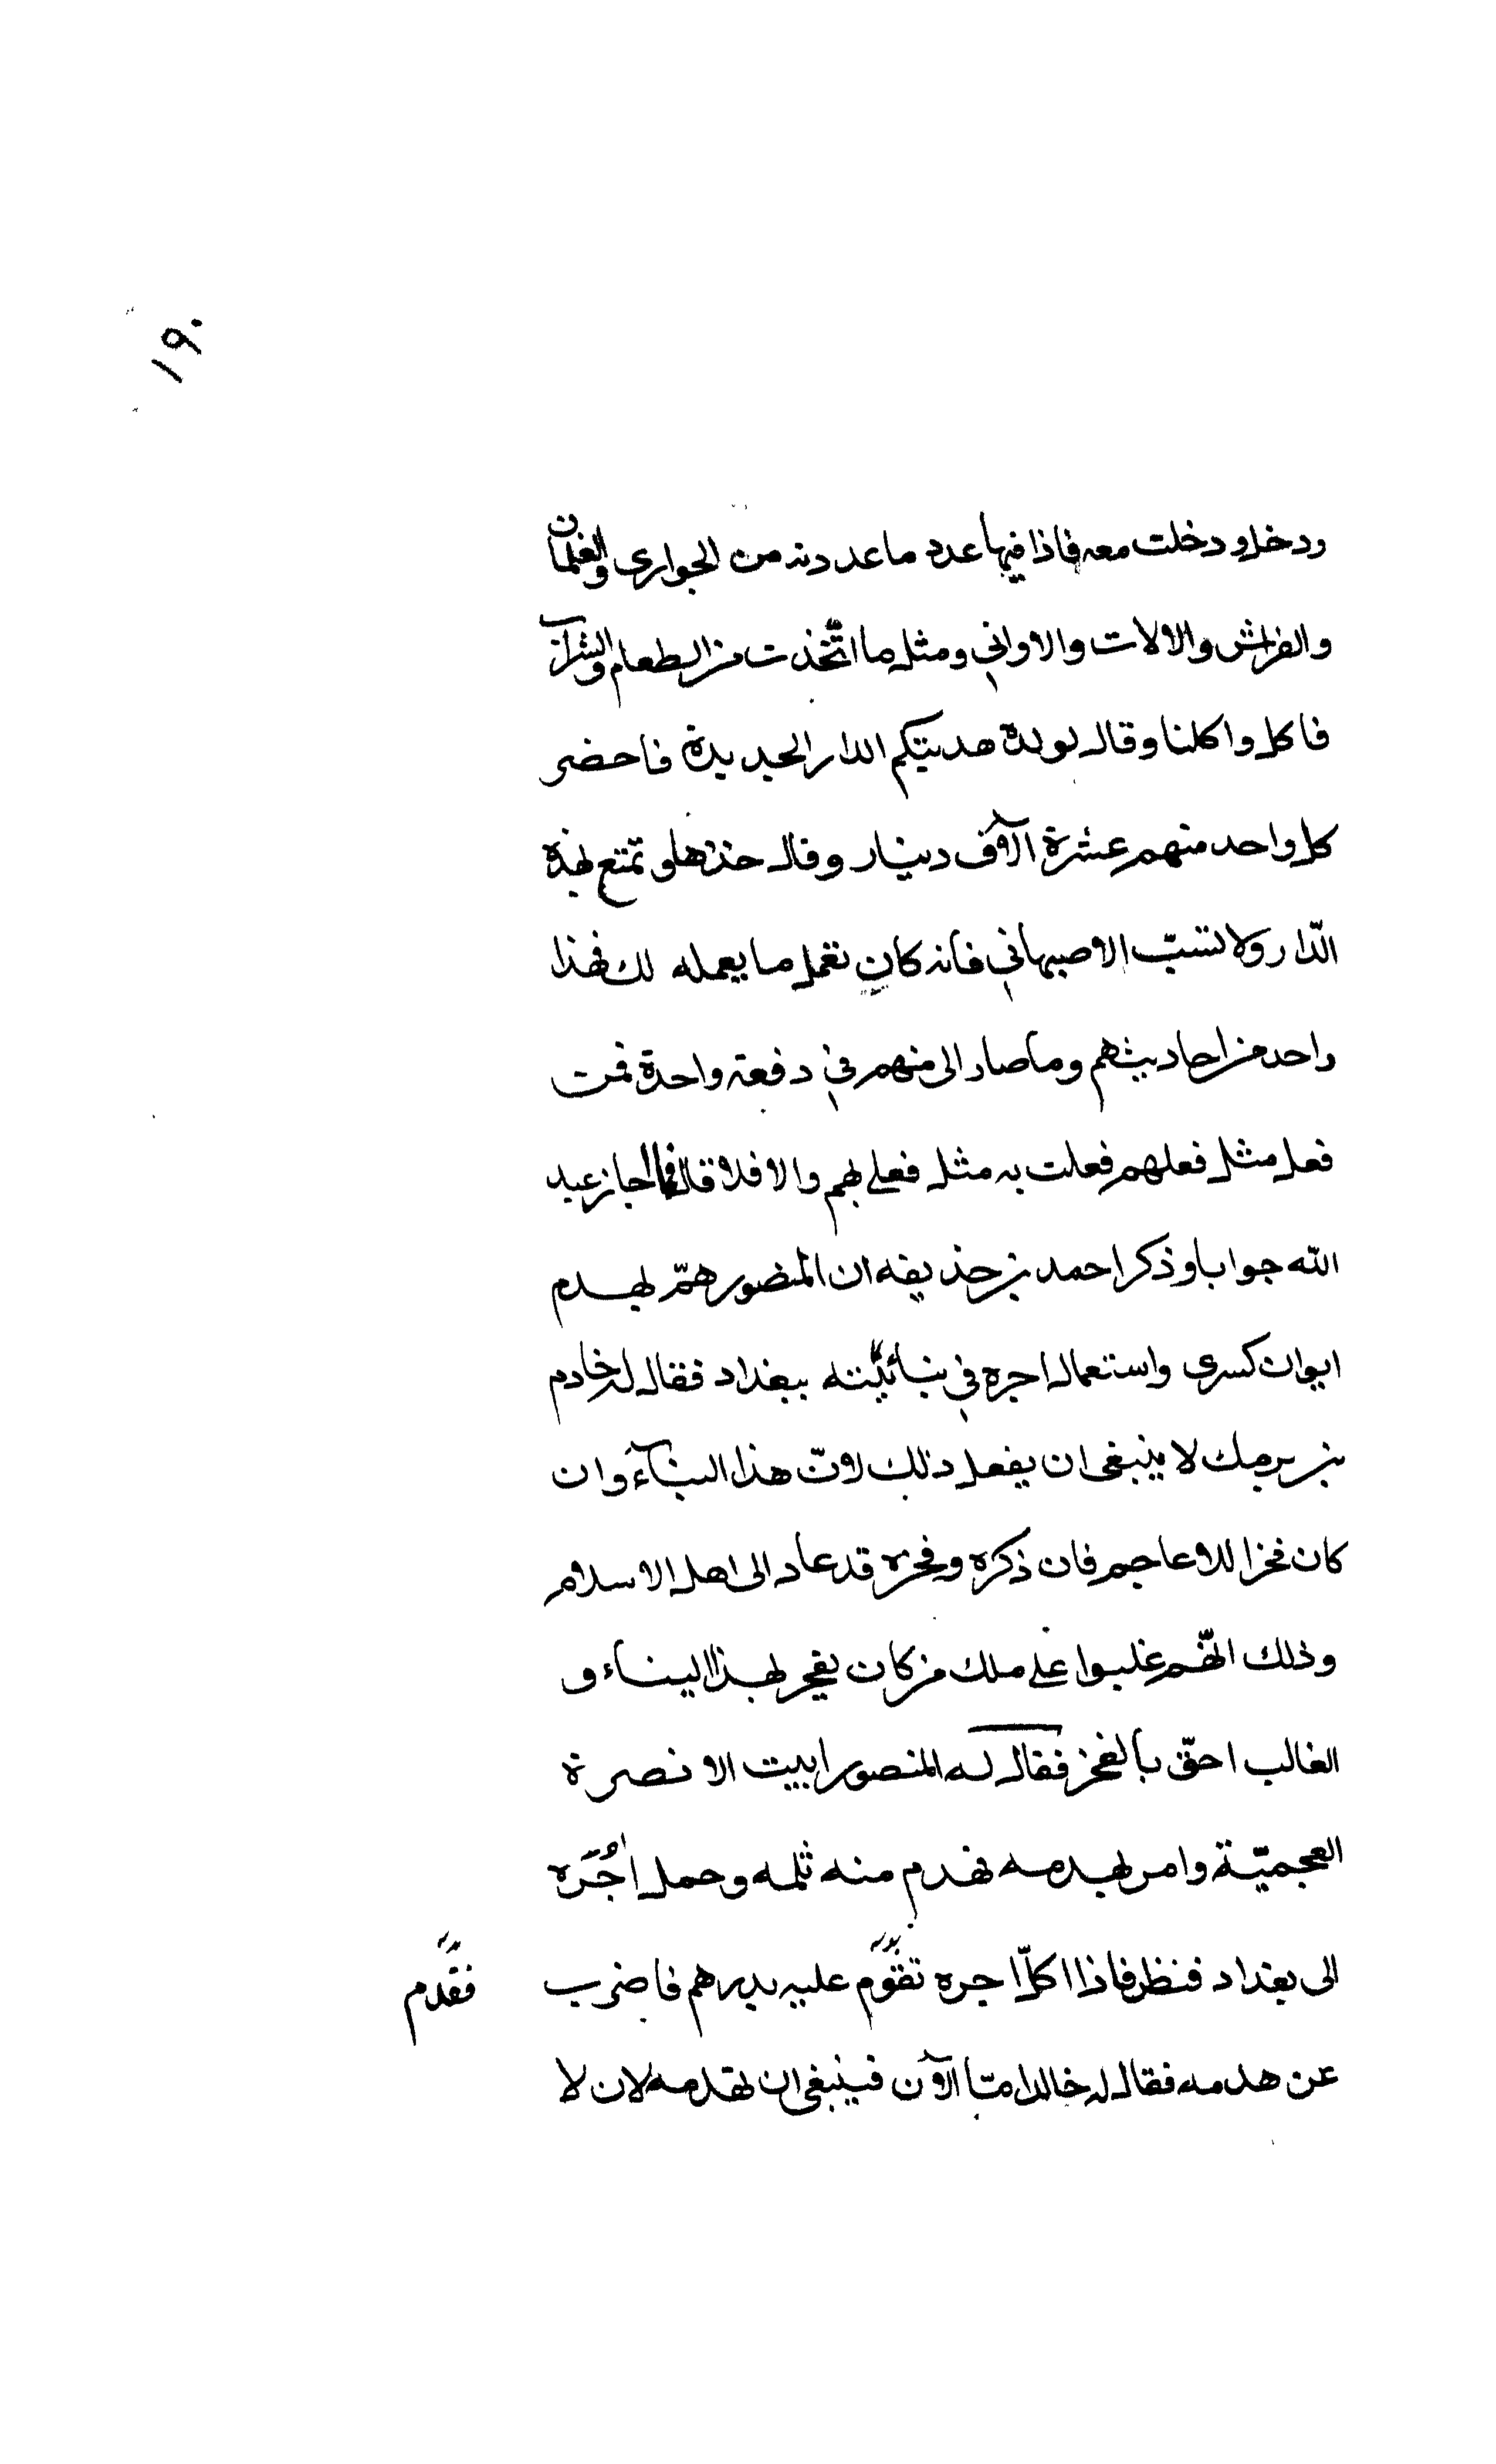 ١٩٠
ودخل ودخلت معه فاذا فيها عدد ما عددته من الجواري والغلمان
والفراش والالات والاواني ومثل ما اتخذت من الطعام والشراب
فاكل واكلنا وقال لولده هديتكم الدار الجديدة فاحضر
كل واحد منهم عشرة الآف دينار وقال خذها وتمتع بهذه
الدّار ولا تسبّ الاصبهاني فانه كان تعمل ما يعمله لك فهذا
واحد من احاديثهم وما صار الى منهم في دفعة واحدة فمن
فعل مثل فعلهم فعلت به مثل فعلي بهم والا فلا قال فما احاز عبد
الله جوابا وذكر احمد بن حذيفه ان المنصور همّ بهدم
ايوان كسرى واستعمال اجره في بنائيته ببغداد فقال له خادم
بن برمك لا ينبغي ان يفعل ذلك لانّ هذا البنآء وان
كان فخرا للاعاجم فان ذكره وفخره قد عاد الى اهل الاسلام
وذلك انّهم غلبوا على ملك من كان يفخر بهذا البناء و
الغالب احقّ بالفخر فقال له المنصور ابيت الا نصرة
العجميّة وامر بهدمه فهدم منه ثلمه وحمل اجُرَه
الى بغداد فنظر فاذا كلّ اجره تقوّم عليه بدرهم فاضرب
فقدم
عن هدمه فقال له خالد امّا الآن فينبغي ان تهدمه لان لا